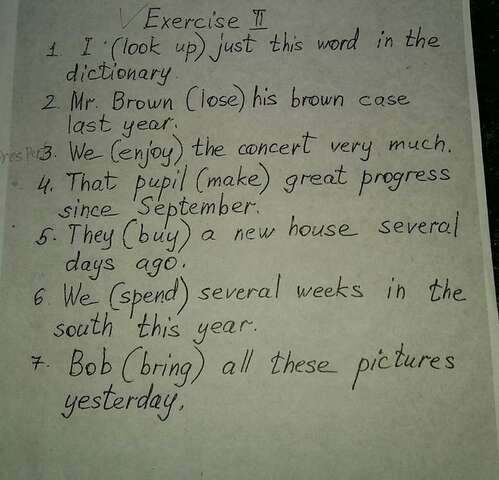 Exercise II
1. I (look up) just this word in the
dictionary.
2. Mr. Brown (lose) his brown case
last year.
3. We (enjoy) the concert very much.
4. That pupil (make) great progress
since September.
5. They (buy) a new house several
days ago.
6 We (spend) several weeks in the
south this year.
7. Bob (bring) all these pictures
yesterday.